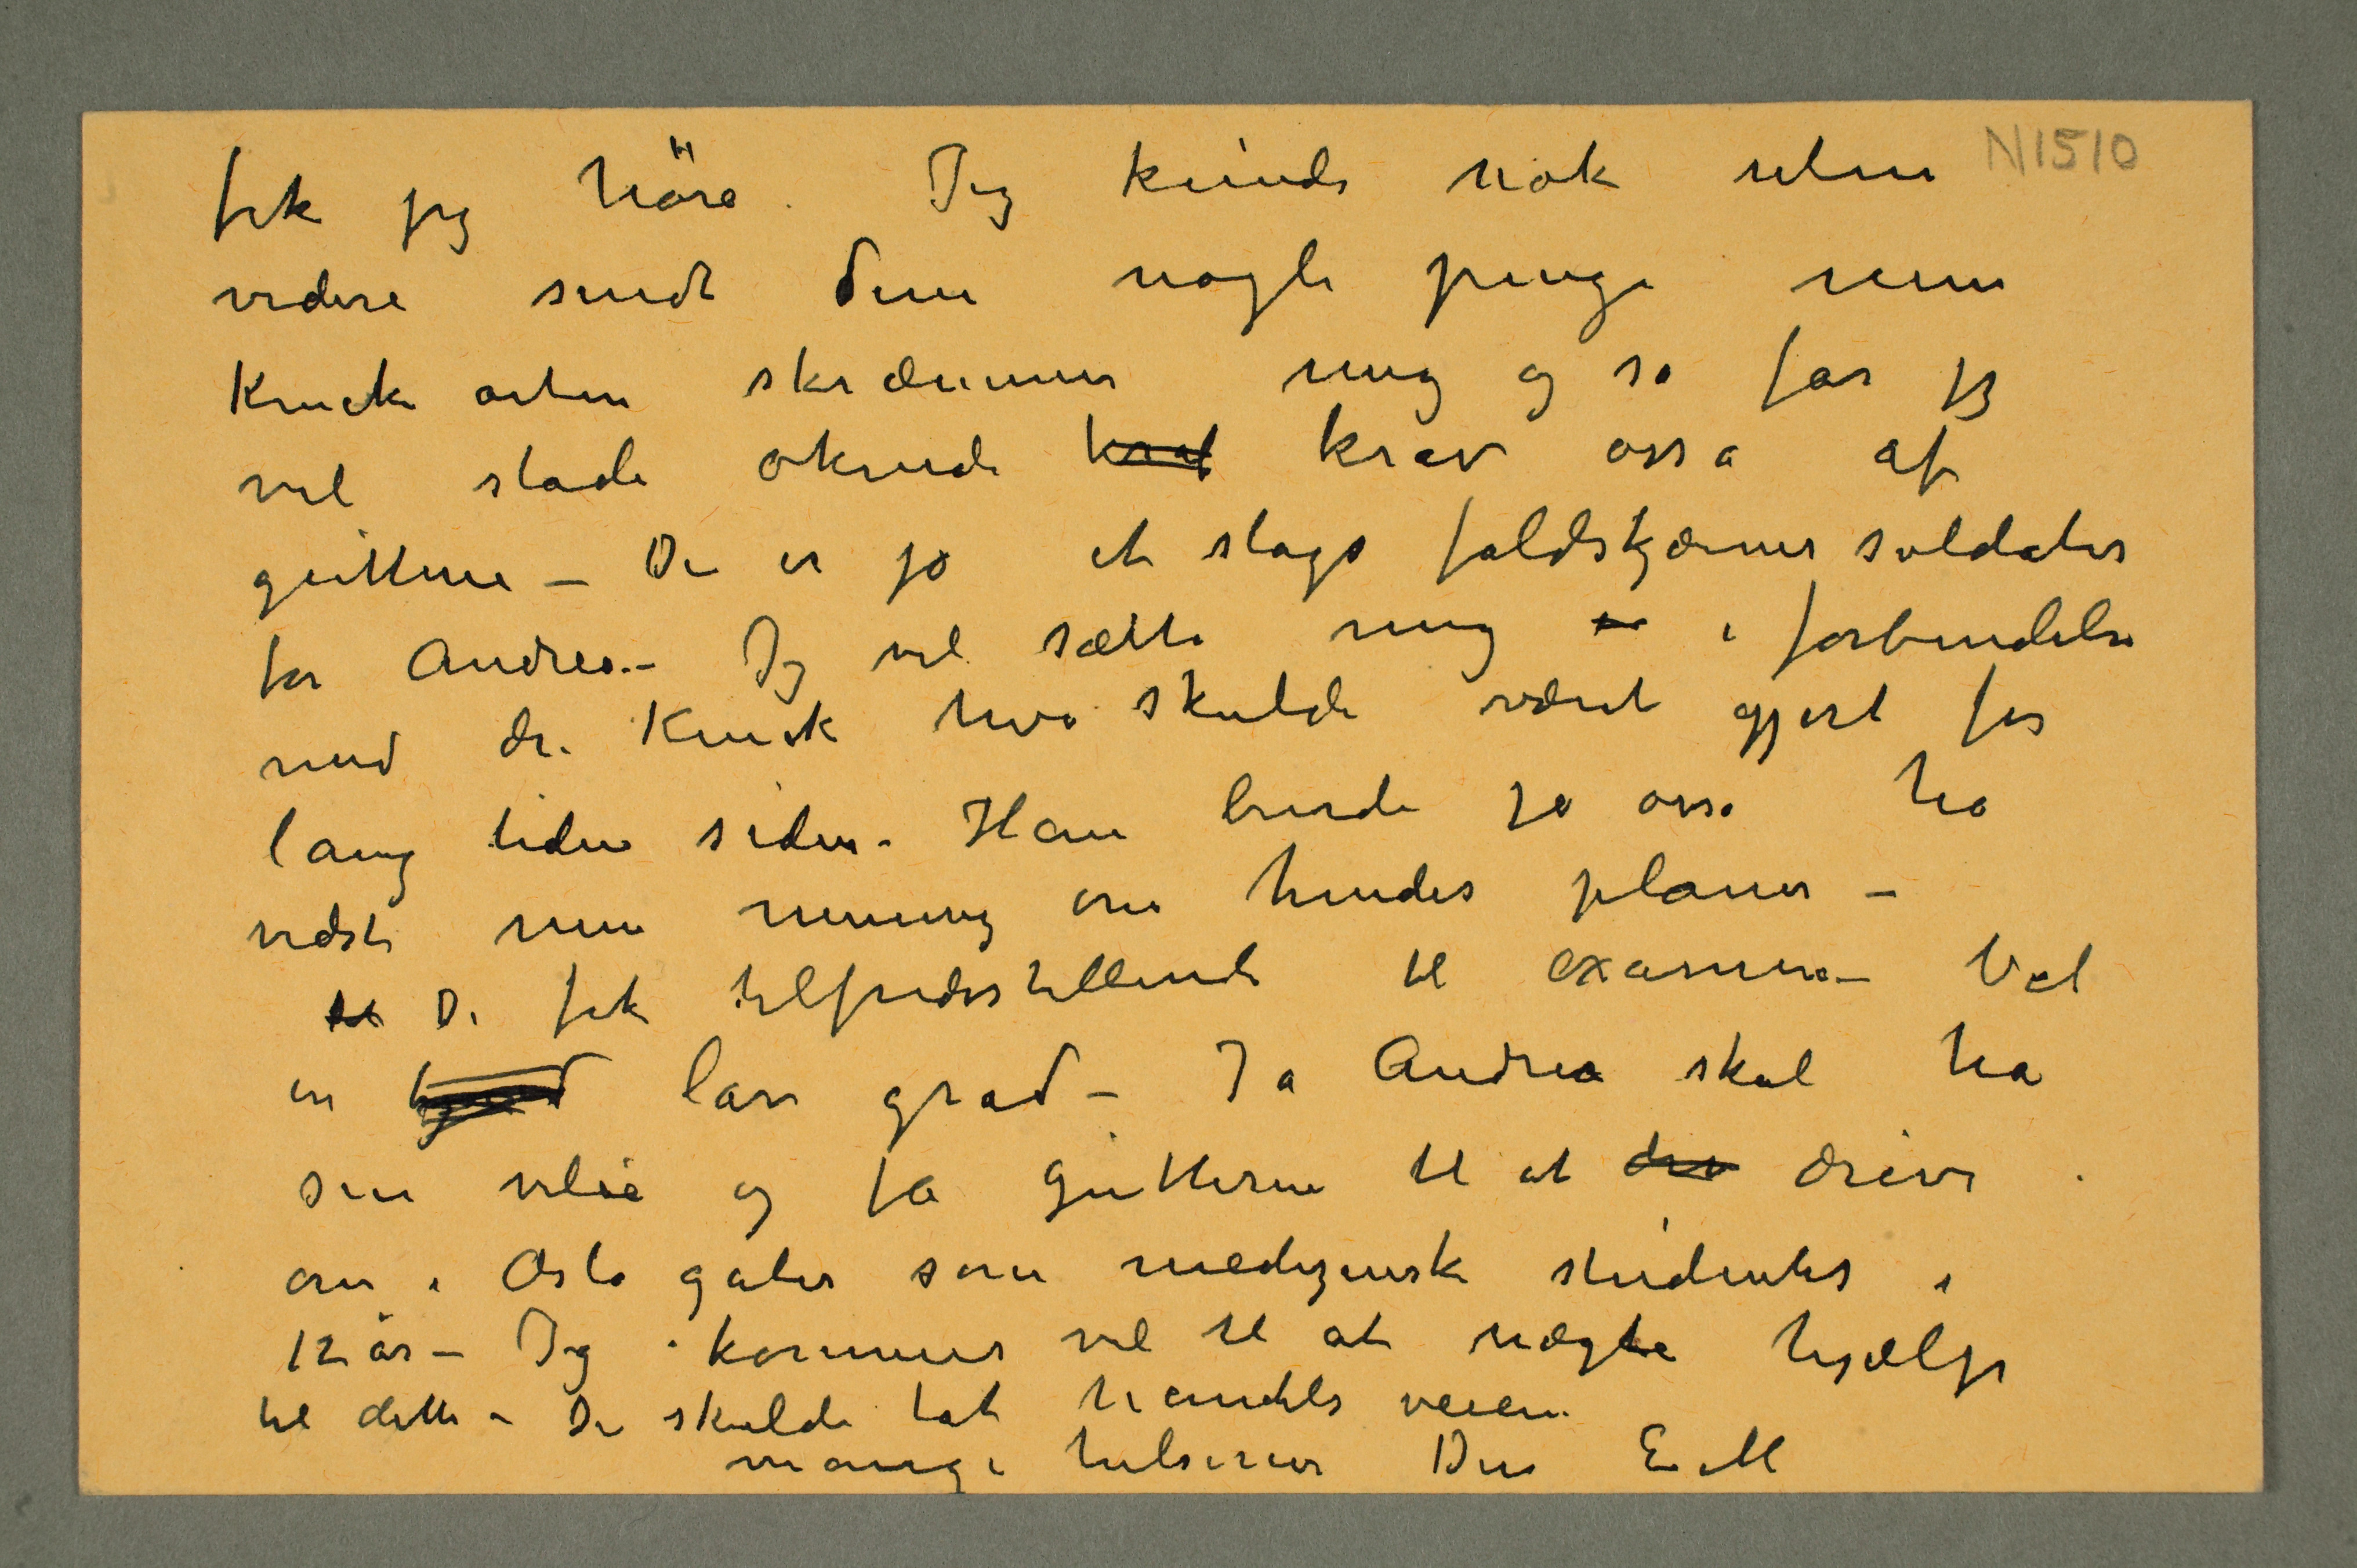 N1510
fik jeg höre. Jeg kunde nok uten
videre sendt dem nogle penge men
Kinck arten skræmmer mig og så får jeg
vel stadi økende kraf krav osså af
guttene – De er jo et slags faldskjærmer soldater
for Andrea – Jeg vil sætte mig i forbindelse
med dr. Kinck hva skulde været gjort for
lang tiden siden. Han burde jo osså ha
vidst min mening om hendes planer –
De fik tilfredsstillende til examen – Vel
en lav grad – Ja Andrea skal ha
sin vilie og få gutterne til at driv drive
om i Oslo gater som medezinsk studenter i
12 år – Jeg kommer vel til at nægte hjælpe
til dette – De skulde tat handels veien
mange hilsener Din E M